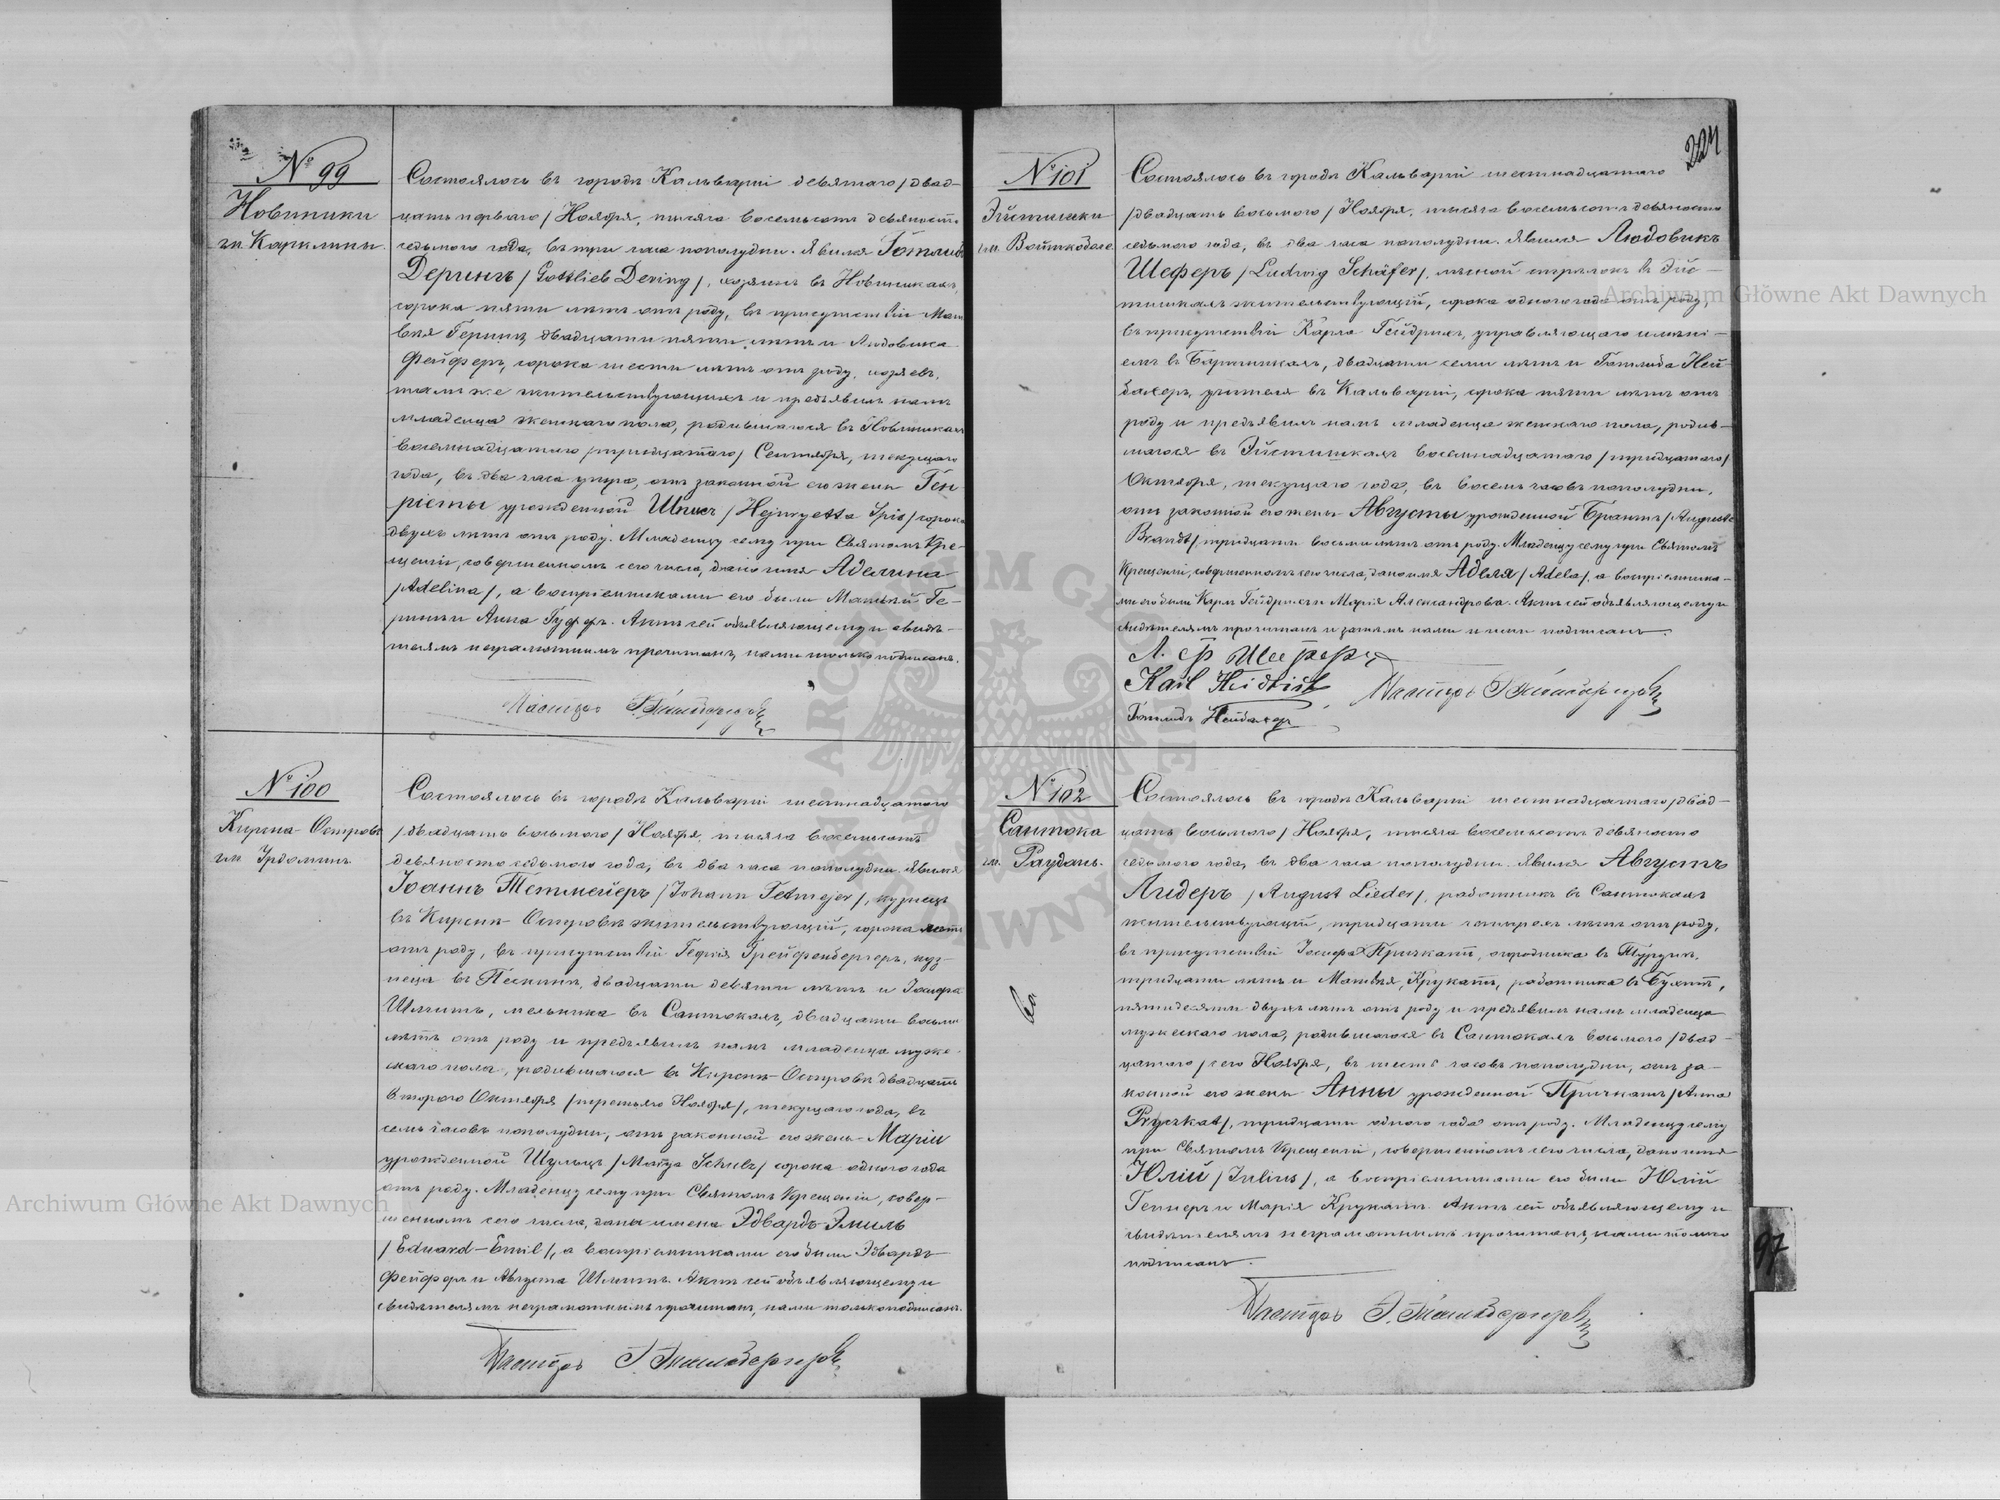 № 99
Новиники
гм. Карклины.
Состоялось въ городѣ Кальваріи девятаго /двад-
цать перваго/ Ноября, тысяча восемьсотъ девяносто
седьмого года, въ три часа пополудни. Явился Готлибъ
Дерингъ /Gottlieb Dering/, хозяинъ въ Новиникахъ,
сорока пяти лѣтъ отъ роду, въ присутствіи Мат
вѣя Герингъ двадцати пяти лѣтъ и Людовика
Фейферъ, сорока шести лѣтъ отъ роду, хозяевъ,
тамже жительствующихъ и предъявилъ намъ
младенца женскаго пола, родившагося въ Новиникахъ
восемнадцатаго /тридцатаго/ Сентября, текущаго
года, въ два часа утра, отъ законной его жены Ген
ріеты урожденной Шписъ /Hejnryetta Spis/ сорока
двухъ лѣтъ отъ роду. Младенцу сему при Святомъ Кре-
щеніи, совершенномъ сего числа, дано имя Аделина
/Adelina/, а воспріемниками его были Матвѣй Ге-
рингъ и Анна Гуффъ. Актъ сей объявляющему и свидѣ-
телямъ неграмотнымъ прочитанъ, нами только подписанъ.
Пасторъ
№ 100
Кирсна-Островъ
гм. Урдоминъ
Состоялось въ городѣ Кальваріи шестнадцатаго
/двадцать восьмого/ Ноября, тысяча восемьсотъ
девяносто седьмого года, въ два часа пополудни. Явился
Іоаннъ Тетмейеръ /Johann Tetmejer/, кузнецъ
въ Кирсна-Островѣ жительствующій, сорока лѣтъ
отъ роду, въ присутствіи Георгія Грейфенбергеръ, куз-
неца въ двадцати девяти лѣтъ и Іосифа
Шмитъ, мельника въ Сантокахъ, двадцати восьми
лѣтъ отъ роду и предъявилъ намъ младенца муже-
скаго пола, родившагося въ Кирсна-Островѣ двадцать
второго Октября /третьяго Ноября/, текущаго года, въ
семь часовъ пополудни, отъ законной его жены Маріи
урожденной Шульцъ /Marya Schulz/ сорока одного года
отъ роду. Младенцу сему при Святомъ Крещеніи, совер-
шенномъ сего числа, даны имена Эдвардъ-Эмиль
/Eduard-Emil/, а воспріемниками его были Эдвардъ
Фейферъ и Августа Шмитъ. Актъ сей объявляющему и
свидѣтелямъ неграмотнымъ прочитанъ, нами только подписанъ.
Пасторъ
224
№ 101
Эйстишки
гм. Войткобole
Состоялось въ городѣ Кальваріи шестнадцатаго
/двадцать восьмого/ Ноября, тысяча восемьсотъ девяносто
седьмого года, въ два часа пополудни. Явился Людовикъ
Шеферъ /Ludwig Schäfer/, лѣсной стрѣлокъ въ Эйс-
тишкахъ жительствующій, сорока одного года отъ роду,
въ присутствіи Карла Гейдрихъ, управляющаго имѣні-
емъ въ двадцати семи лѣтъ и Готлиба Ней-
бахеръ, учителя въ Кальваріи, сорока пяти лѣтъ отъ
роду и предъявилъ намъ младенца женскаго пола, родив-
шагося въ Эйстишкахъ восемнадцатаго /тридцатаго/
Октября, текущаго года, въ восемь часовъ пополудни,
отъ законной его жены Августы урожденной Брантъ /Auguste
Brandt/ тридцати восьми лѣтъ отъ роду. Младенцу сему при Святомъ
Крещеніи, совершенномъ сего числа, дано имя Адэля /Adela/, а воспріемника-
ми его были Карлъ Гейдрихъ и Марія Александрова. Актъ сей объявляющему и
свидѣтелямъ прочитанъ и затѣмъ нами и ими подписанъ.
Karl Heidrich
Готлибъ Нейбахеръ
Пасторъ
№ 102
Сантока
гм. Раудань.
Состоялось въ городѣ Кальваріи шестнадцатаго /двад-
цать восьмого/ Ноября, тысяча восемьсотъ девяносто
седьмого года, въ два часа пополудни. Явился Августъ
Лидеръ /August Lieder/, работникъ въ Сантокахъ
жительствующій, тридцати четырехъ лѣтъ отъ роду,
въ присутствіи Іосифа Причкатъ, огородника въ
тридцати лѣтъ и Матвѣя Крукатъ, работника въ
пятидесяти двухъ лѣтъ отъ роду и предъявилъ намъ младенца
мужескаго пола, родившагося въ Сантокахъ восьмого /двад-
цатаго/ сего Ноября, въ шесть часовъ пополудни, отъ за-
конной его жены Анны урожденной Причкатъ /Anna
Pryczkat/, тридцати одного года отъ роду. Младенцу сему
при Святомъ Крещеніи, совершенномъ сего числа, дано имя
Юлій /Julius/, а воспріемниками его были Юлій
Геннеръ и Марія Крукатъ. Актъ сей объявляющему и
свидѣтелямъ неграмотнымъ прочитанъ, нами только
подписанъ.
Пасторъ
97
Archiwum Główne Akt Dawnych
Archiwum Główne Akt Dawnych
ARCHIWUM GŁÓWNE AKT DAWNYCH